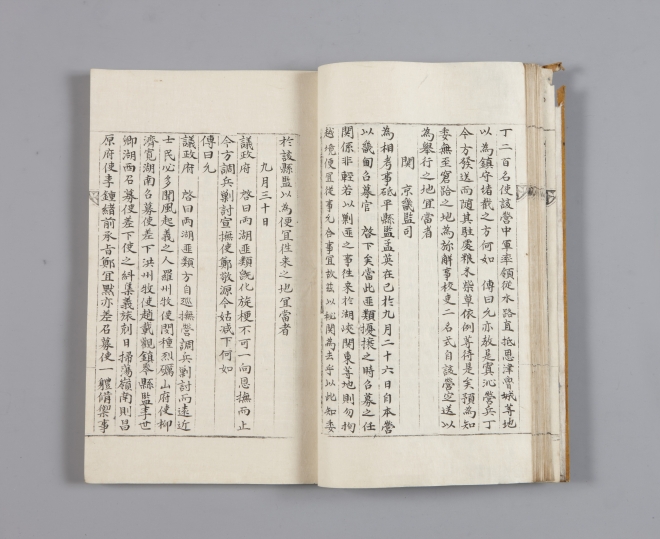 丁二百名使該營中軍率領從水路直抵恩津魯城等地
以爲鎭守堵截之方何如　傳曰允亦敎是寘沁營兵丁
今方發送而隨其駐處粮米柴草依例等待是矣預爲知
委無至窘路之地爲旀解事校吏二名式自該營定送以
爲擧行之地宜當者
關　京畿監司
爲相考事砥平縣監孟英在已於九月二十六日自本營
以畿甸召募官　啓下矣當此匪類擾攘之時召募之任
關係非輕若以剿匪之事往來於湖峽關東等地則勿拘
越境便宜從事允合事宜故玆以秘關爲去乎以此知委
於該縣監以爲便宜往來之地宜當者
九月三十日
議政府　啓曰兩湖匪類旣化旋梗不可一向恩撫而止
今方調兵剿討宣撫使鄭敬源今姑減下何如
傳曰允
議政府　啓曰兩湖匪類方自巡撫營調兵剿討而遠近
士民必多聞風起義之人羅州牧使閔種烈礪山府使柳
濟寬湖南召募使差下洪州牧使趙載觀鎭岑縣監李世
卿湖西召募使差下使之糾集義旅刻日掃蕩嶺南則昌
原府使李鍾緖前承旨鄭宜默亦差召募使一軆倡禦事